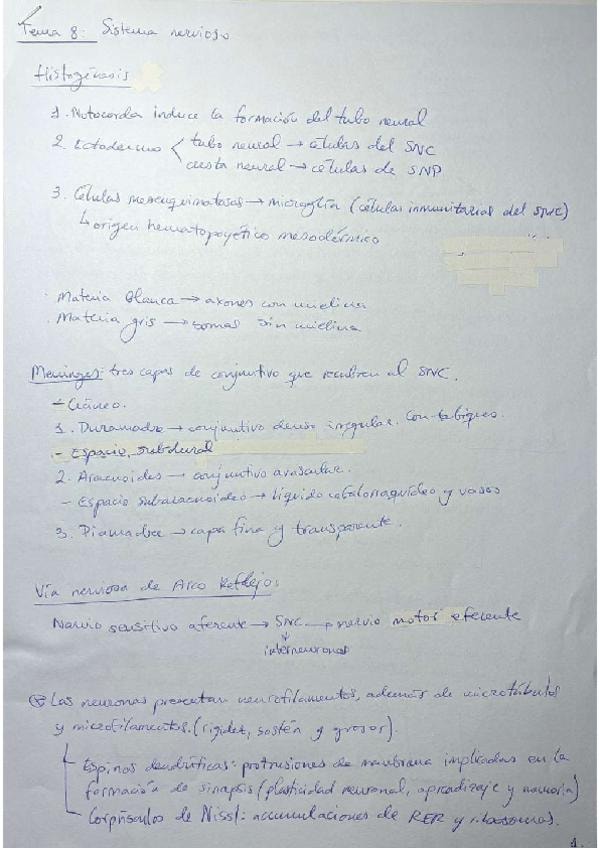 Tema 8: Sistema nervioso
Histogénesis
1. Notocorda induce la formación del tubo neural
2. Ectodermo < tubo neural → células del SNC
cresta neural → células de SNP
3. Células mesenquimatosas → microglía (células inmunitarias del SNC)
↳ origen hematopoyético mesodérmico
· Materia blanca → axones con mielina
· Materia gris → somas sin mielina
Meninges: tres capas de conjuntivo que recubren al SNC.
- Cráneo.
1. Duramadre → conjuntivo denso irregular. Con tabiques.
- Espacio subdural
2. Aracnoides → conjuntivo avascular.
- Espacio subaracnoideo → líquido cefalorraquídeo y vasos
3. Piamadre → capa fina y transparente.
Vía nerviosa de Arco Reflejo:
Nervio sensitivo aferente → SNC → nervio motor eferente
↓
interneuronas
Las neuronas presentan neurofilamentos, además de microtúbulos
y microfilamentos. (rigidez, sostén y grosor).
Espinas dendríticas: protrusiones de membrana implicadas en la
formación de sinapsis (plasticidad neuronal, aprendizaje y memoria)
Corpúsculos de Nissl: acumulaciones de RER y ribosomas.
1.